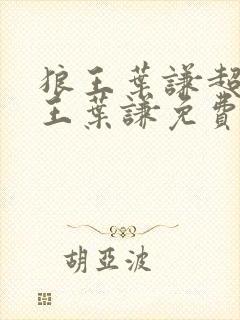 狼王葉謙超
王葉謙免費
胡亞波